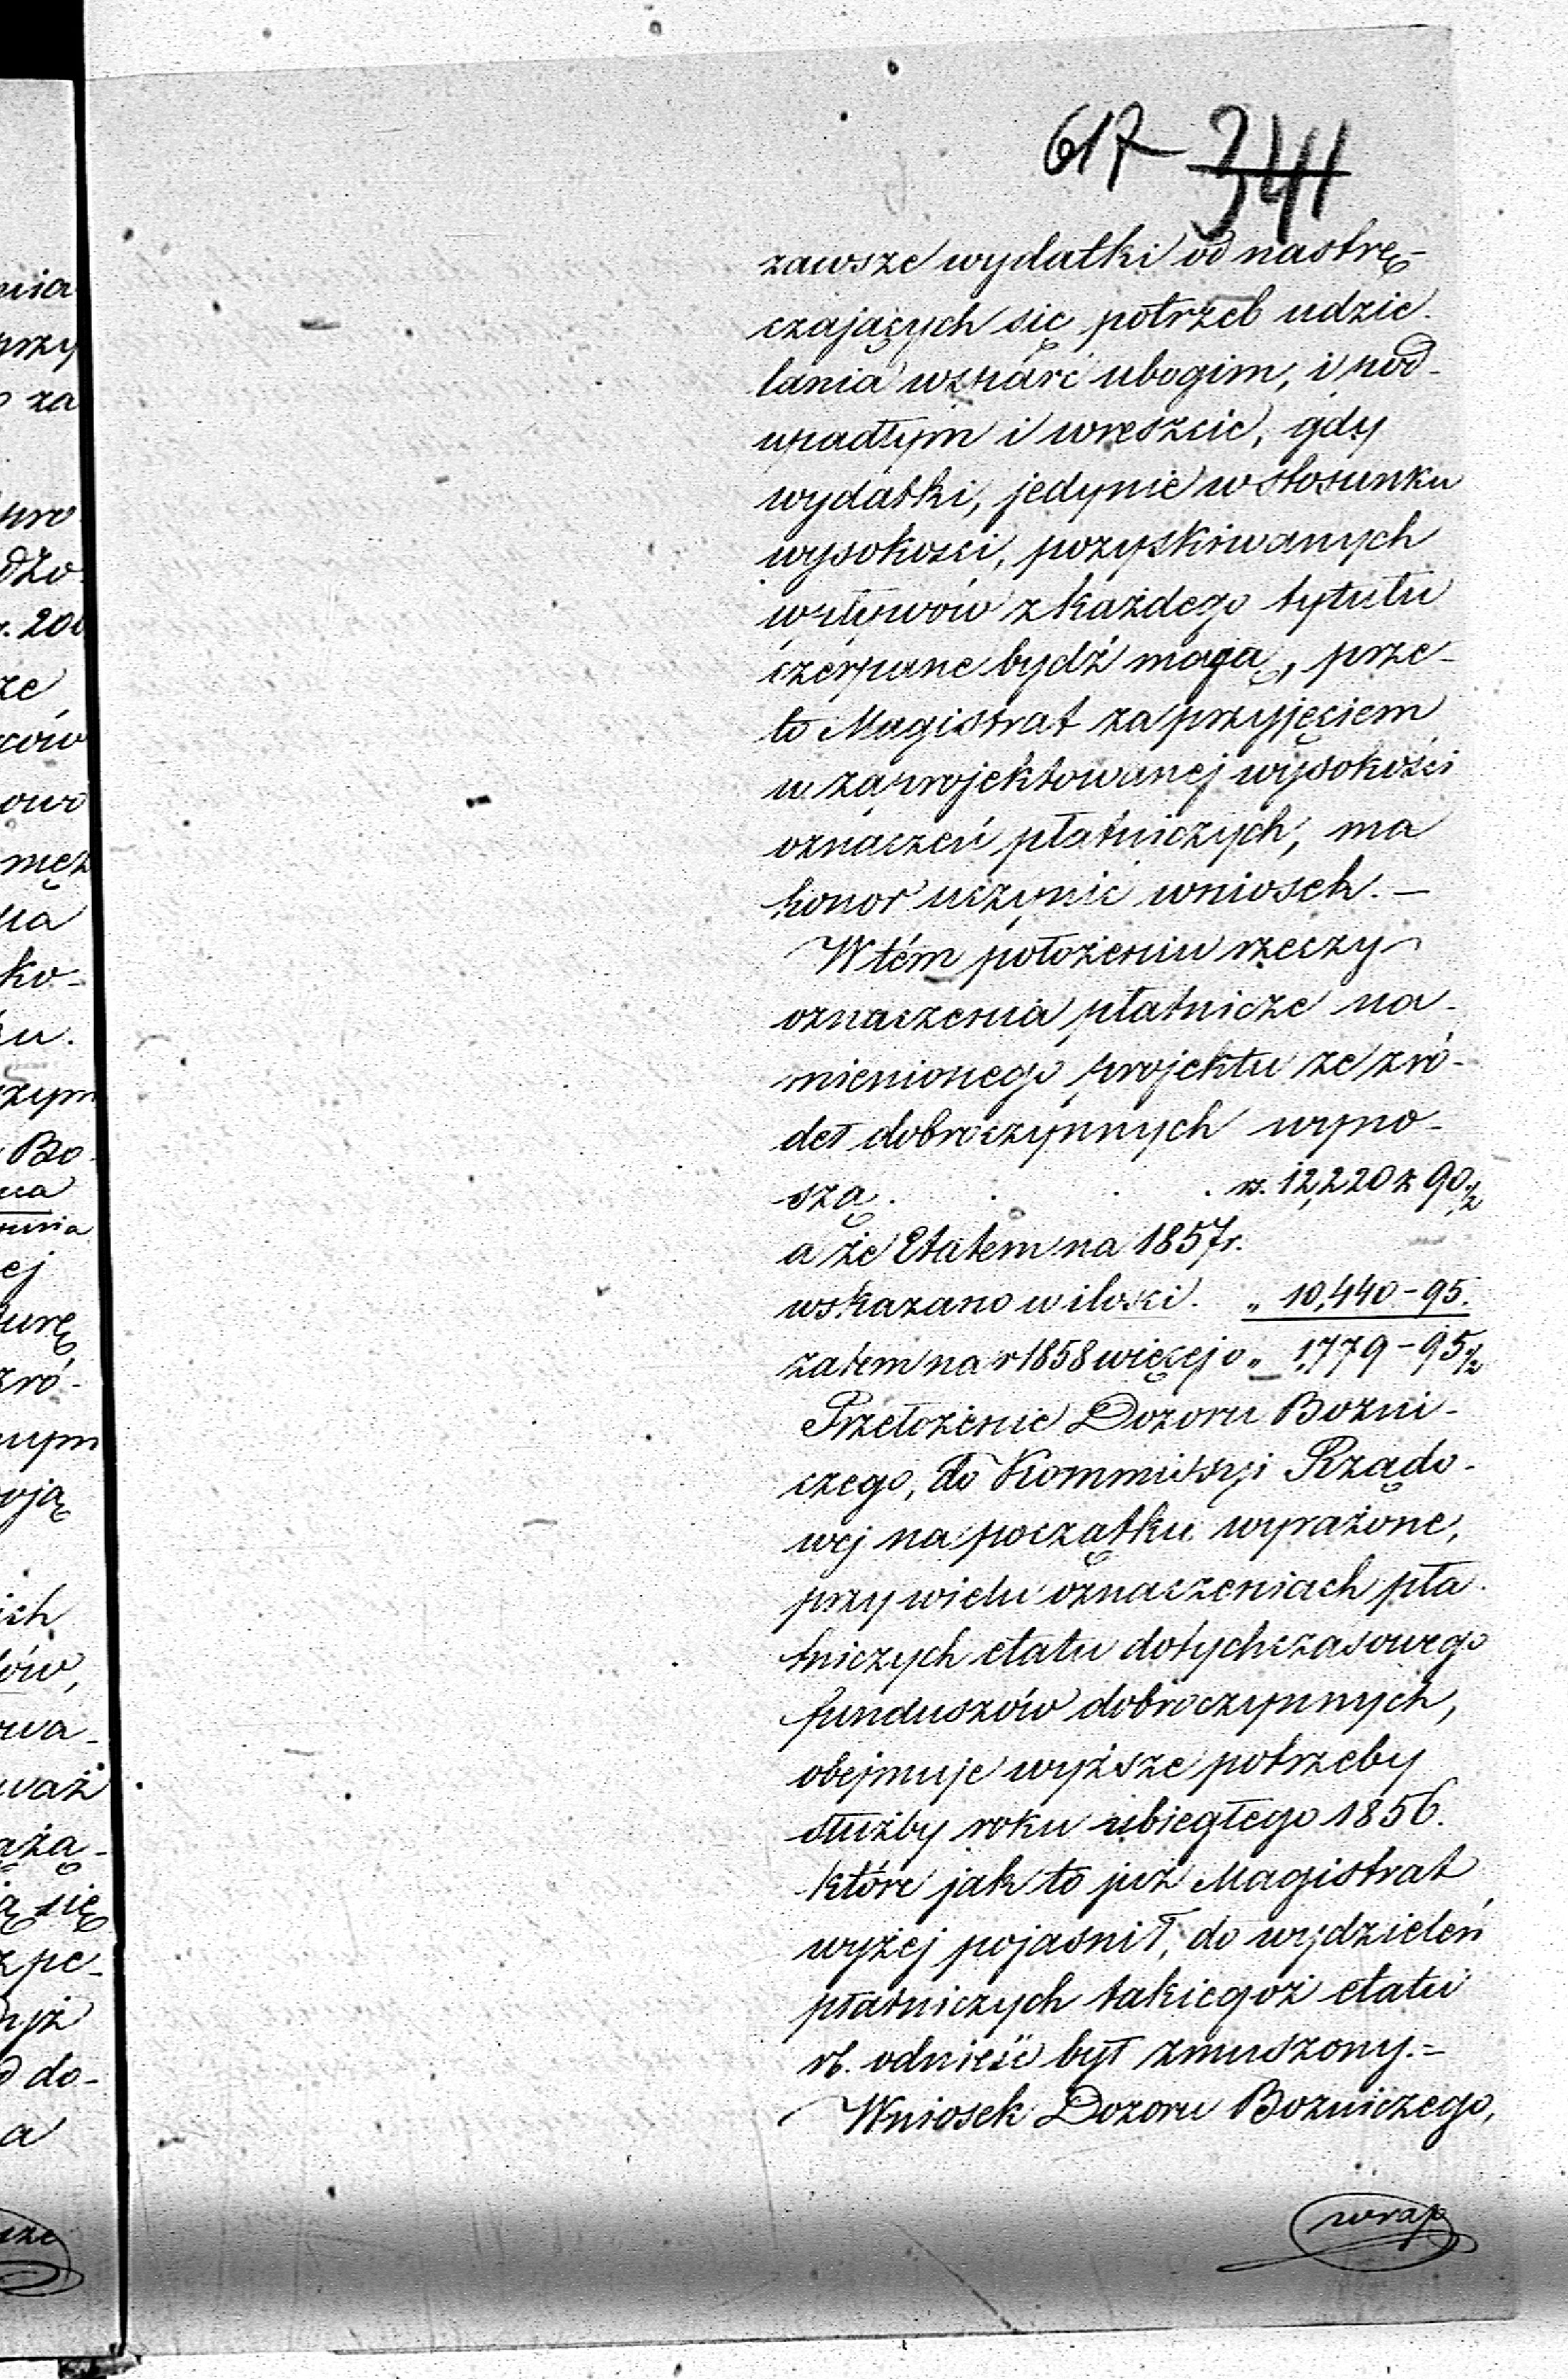 617 341
zawsze wydatki od nastrę-
czających się potrzeb udzie-
lania wsparć ubogim, i pod-
upadłym i wreszcie, gdy
wydatki, jedynie w stosunku
wysokości, pozyskiwanych
wpływów z każdego tytułu
czerpane bydź mogą, prze-
to Magistrat za przyjęciem
w zaprojektowanej wysokości
oznaczeń płatniczych, ma
honor uczynić wniosek. —
W tém położeniu rzeczy
oznaczenia płatnicze na-
mienionego projektu ze źró-
deł dobroczynnych wyno-
szą . . . . rs. 12,220 k 90½
a że Etatem na 1857 r.
wskazano w ilości. „ 10,440 - 95.
zatem na r 1858 więcej o „ 1,779 - 95½
Przełożenie Dozoru Bożni-
czego, do Kommissyi Rządo-
wej na początku wyrażone,
przy wielu oznaczeniach pła-
tniczych etatu dotychczasowego
funduszów dobroczynnych,
obejmuje wyższe potrzeby
służby roku ubiegłego 1856.
które jak to już Magistrat
wyżej pojaśnił, do wydzieleń
płatniczych takiegoż etatu
rb. odnieść był zmuszony. =
Wniosek Dozoru Bożniczego,
wrap
nia
przy
za
pro
dzo
r. 200
ze
ców
owo
męz
na
ko-
ku.
czym
Bo
ej
urę
zró-
nym
oją
ich
ów,
wa-
waż
ażą-
ą się
zpe-
nyż
do-
a